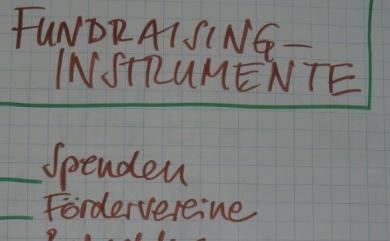 FUNDRAISING-
INSTRUMENTE
Spenden
Fördervereine